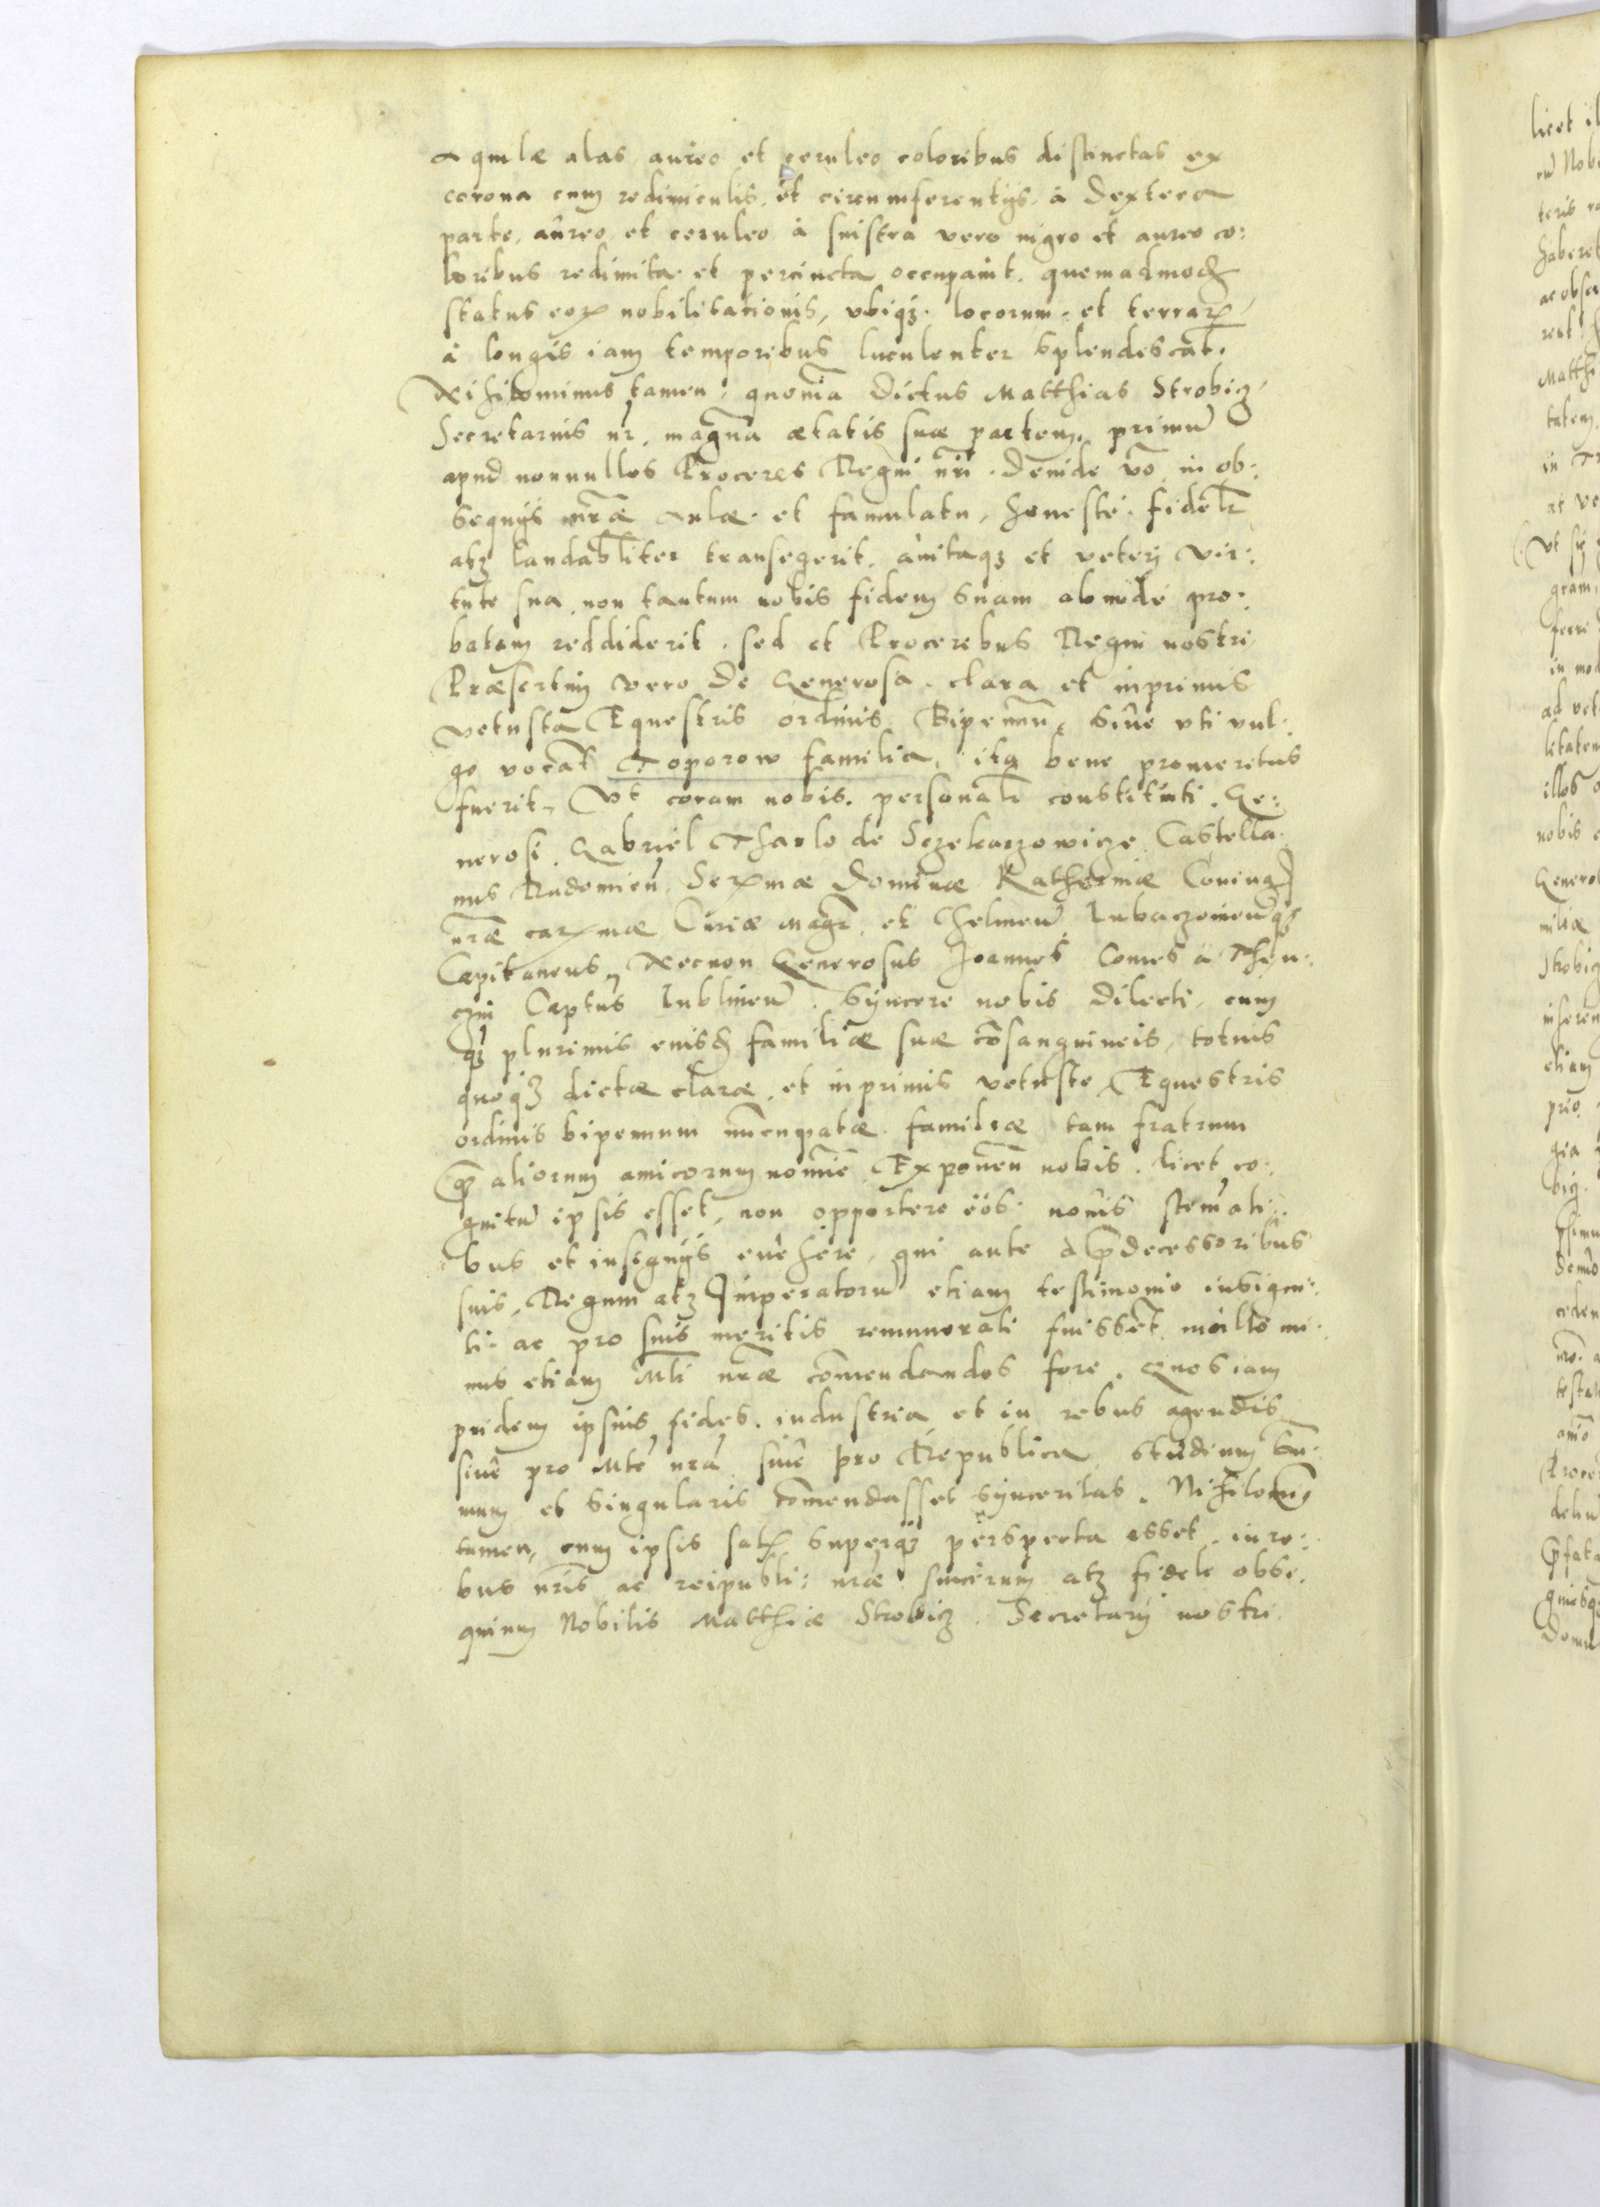 Aquilæ alas aureo et ceruleo coloribus distinctas ex
corona cum redimiculis, et circumferentijs, à dextera
parte, aûreo et ceruleo à sinistra vero nigro et aureo co:
loribus redimita et percincta occupauit, quemadmod
status eoꝝ nobilitacionis, vbiqꝫ locorum et terraꝝ
à longis iam temporibus luculenter splendescat.
Nihilominus tamen, quonia dictus Matthias Strobicz
Secretarius nr, magna ætatis suæ partem, primu
apud nonnullos Proceres Regni nri. deinde vo in ob:
sequijs nræ Aulæ et famulatu, honestè, fidelr
atqꝫ laudabliter transegerit, auitaqꝫ et veterj vir:
tute sua non tantum nobis fidem suam abundè pro:
batam reddiderit, sed et Proceribus Regni nostri
Præsertim vero de Generosa, clara et inprimis
vetusta Equestris ordinis Bipennu, siûe vti vul:
go vocat Toporow familia, ita bene promeritus
fuerit, Vt coram nobis personalr constituti, Ge:
nerosi Gabriel Tharlo de Sczekarzowicze Castella:
nus Radomien, Serꝫmæ Dominæ Katherinæ Coniug
nræ carꝫmæ Curiæ Magr, et Chelmen Lubaczouienqꝫ
Capitaneus, Necnon Generosus Joannes Comes à Then:
czin Captus Lublinen, Syncere nobis dilecti, cum
qꝫ plurimis eiusd familiæ suæ cosanguineis, totius
quoqꝫ dictæ claræ, et inprimis vetustæ Equestris
ordinis bipennum nucupatæ familiæ tam fratrum
qꝫ aliorum amicorum nomie Exponen nobis, licet co:
gnitu ipsis esset, non opportere eos nouis stemati:
bus et insignijs euehere, qui ante à pdecessoribus
suis, Regum atqꝫ Imperatoru etiam testimonio insigni:
ti ac pro suis meritis remunerati fuisset, nicillo mi:
nus etiam Mti nræ comendandos fore, Quos iam
pridem ipsius fides, industria et in rebus agendis
siue pro Mte nra siue pro Republica studium sum:
mum et singularis comendasset synceritas. Nihilomi
tamen, cum ipsis satꝫ superqꝫ perspecta esset, in re:
bus nris ac reipubli: nræ sincerum atqꝫ fidele obse:
quium Nobilis Matthiæ Strobicz Secretarij nostri